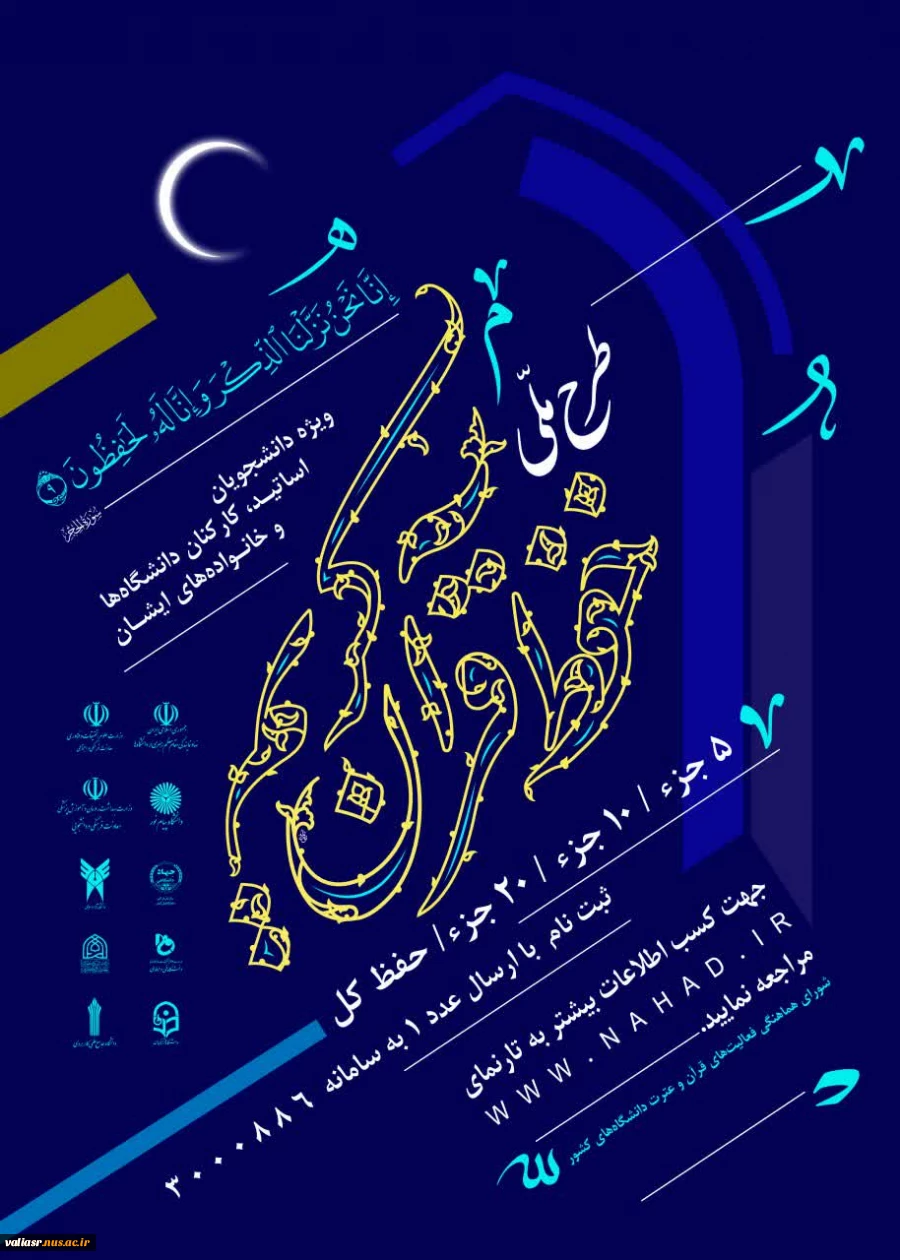 إِنَّا نَحْنُ نَزَّلْنَا ٱلذِّكْرَ وَإِنَّا لَهُۥ لَحَٰفِظُونَ ۹
سورة الحجر
طرح ملّی
حفظ قرآن کریم
ویژه دانشجویان
اساتید، کارکنان دانشگاه‌ها
و خانواده‌های ایشان
۵ جزء / ۱۰ جزء / ۲۰ جزء / حفظ کل
ثبت نام با ارسال عدد ۱ به سامانه ۳۰۰۰۰۸۸۶
جهت کسب اطلاعات بیشتر به تارنمای
WWW.NAHAD.IR
مراجعه نمایید.
شورای هماهنگی فعالیت‌های قرآن و عترت دانشگاه‌های کشور
valiasr.nus.ac.ir